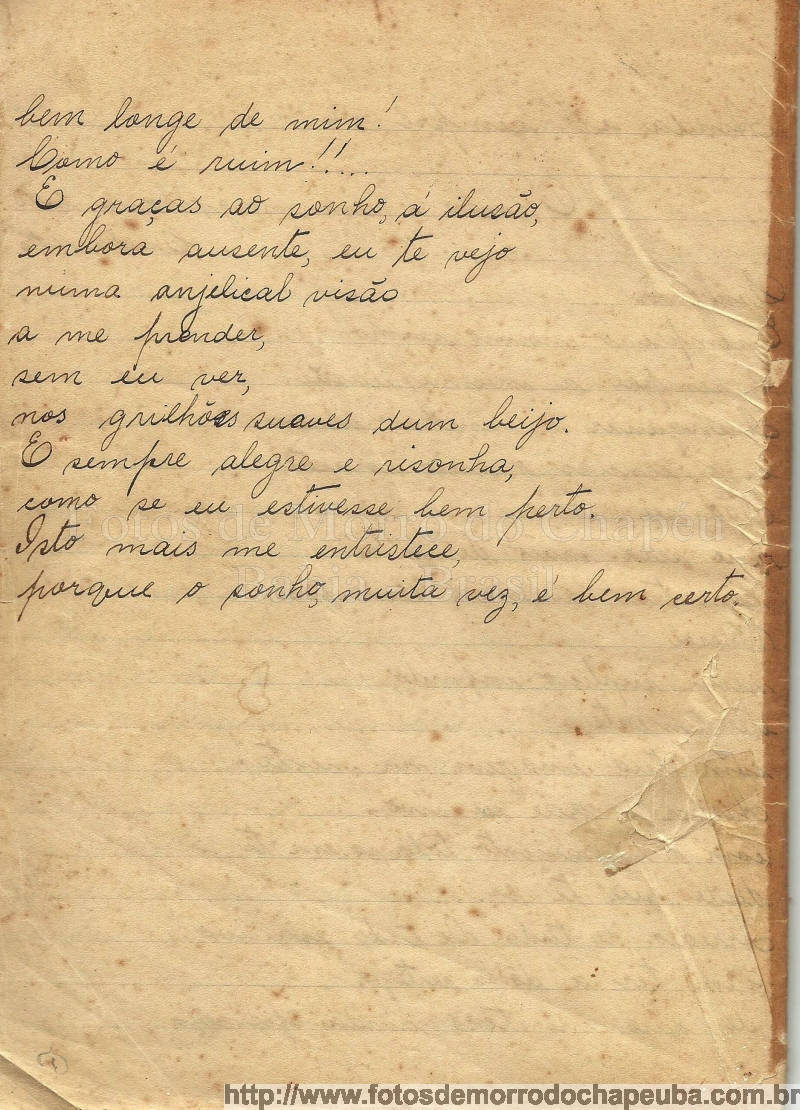 bem longe de mim!
Como é ruim!!....
E graças ao sonho, á ilusão,
embora ausente, eu te vejo
numa anjelical visão
a me prender,
sem eu ver,
nos grilhões suaves dum beijo.
E sempre alegre e risonha,
como se eu estivesse bem perto.
Fotos de Morro do Chapéu
Isto mais me entristece,
Bahia - Brasil
porque o sonho, muita vez, é bem certo.
http://www.fotosdemorrodochapeuba.com.br